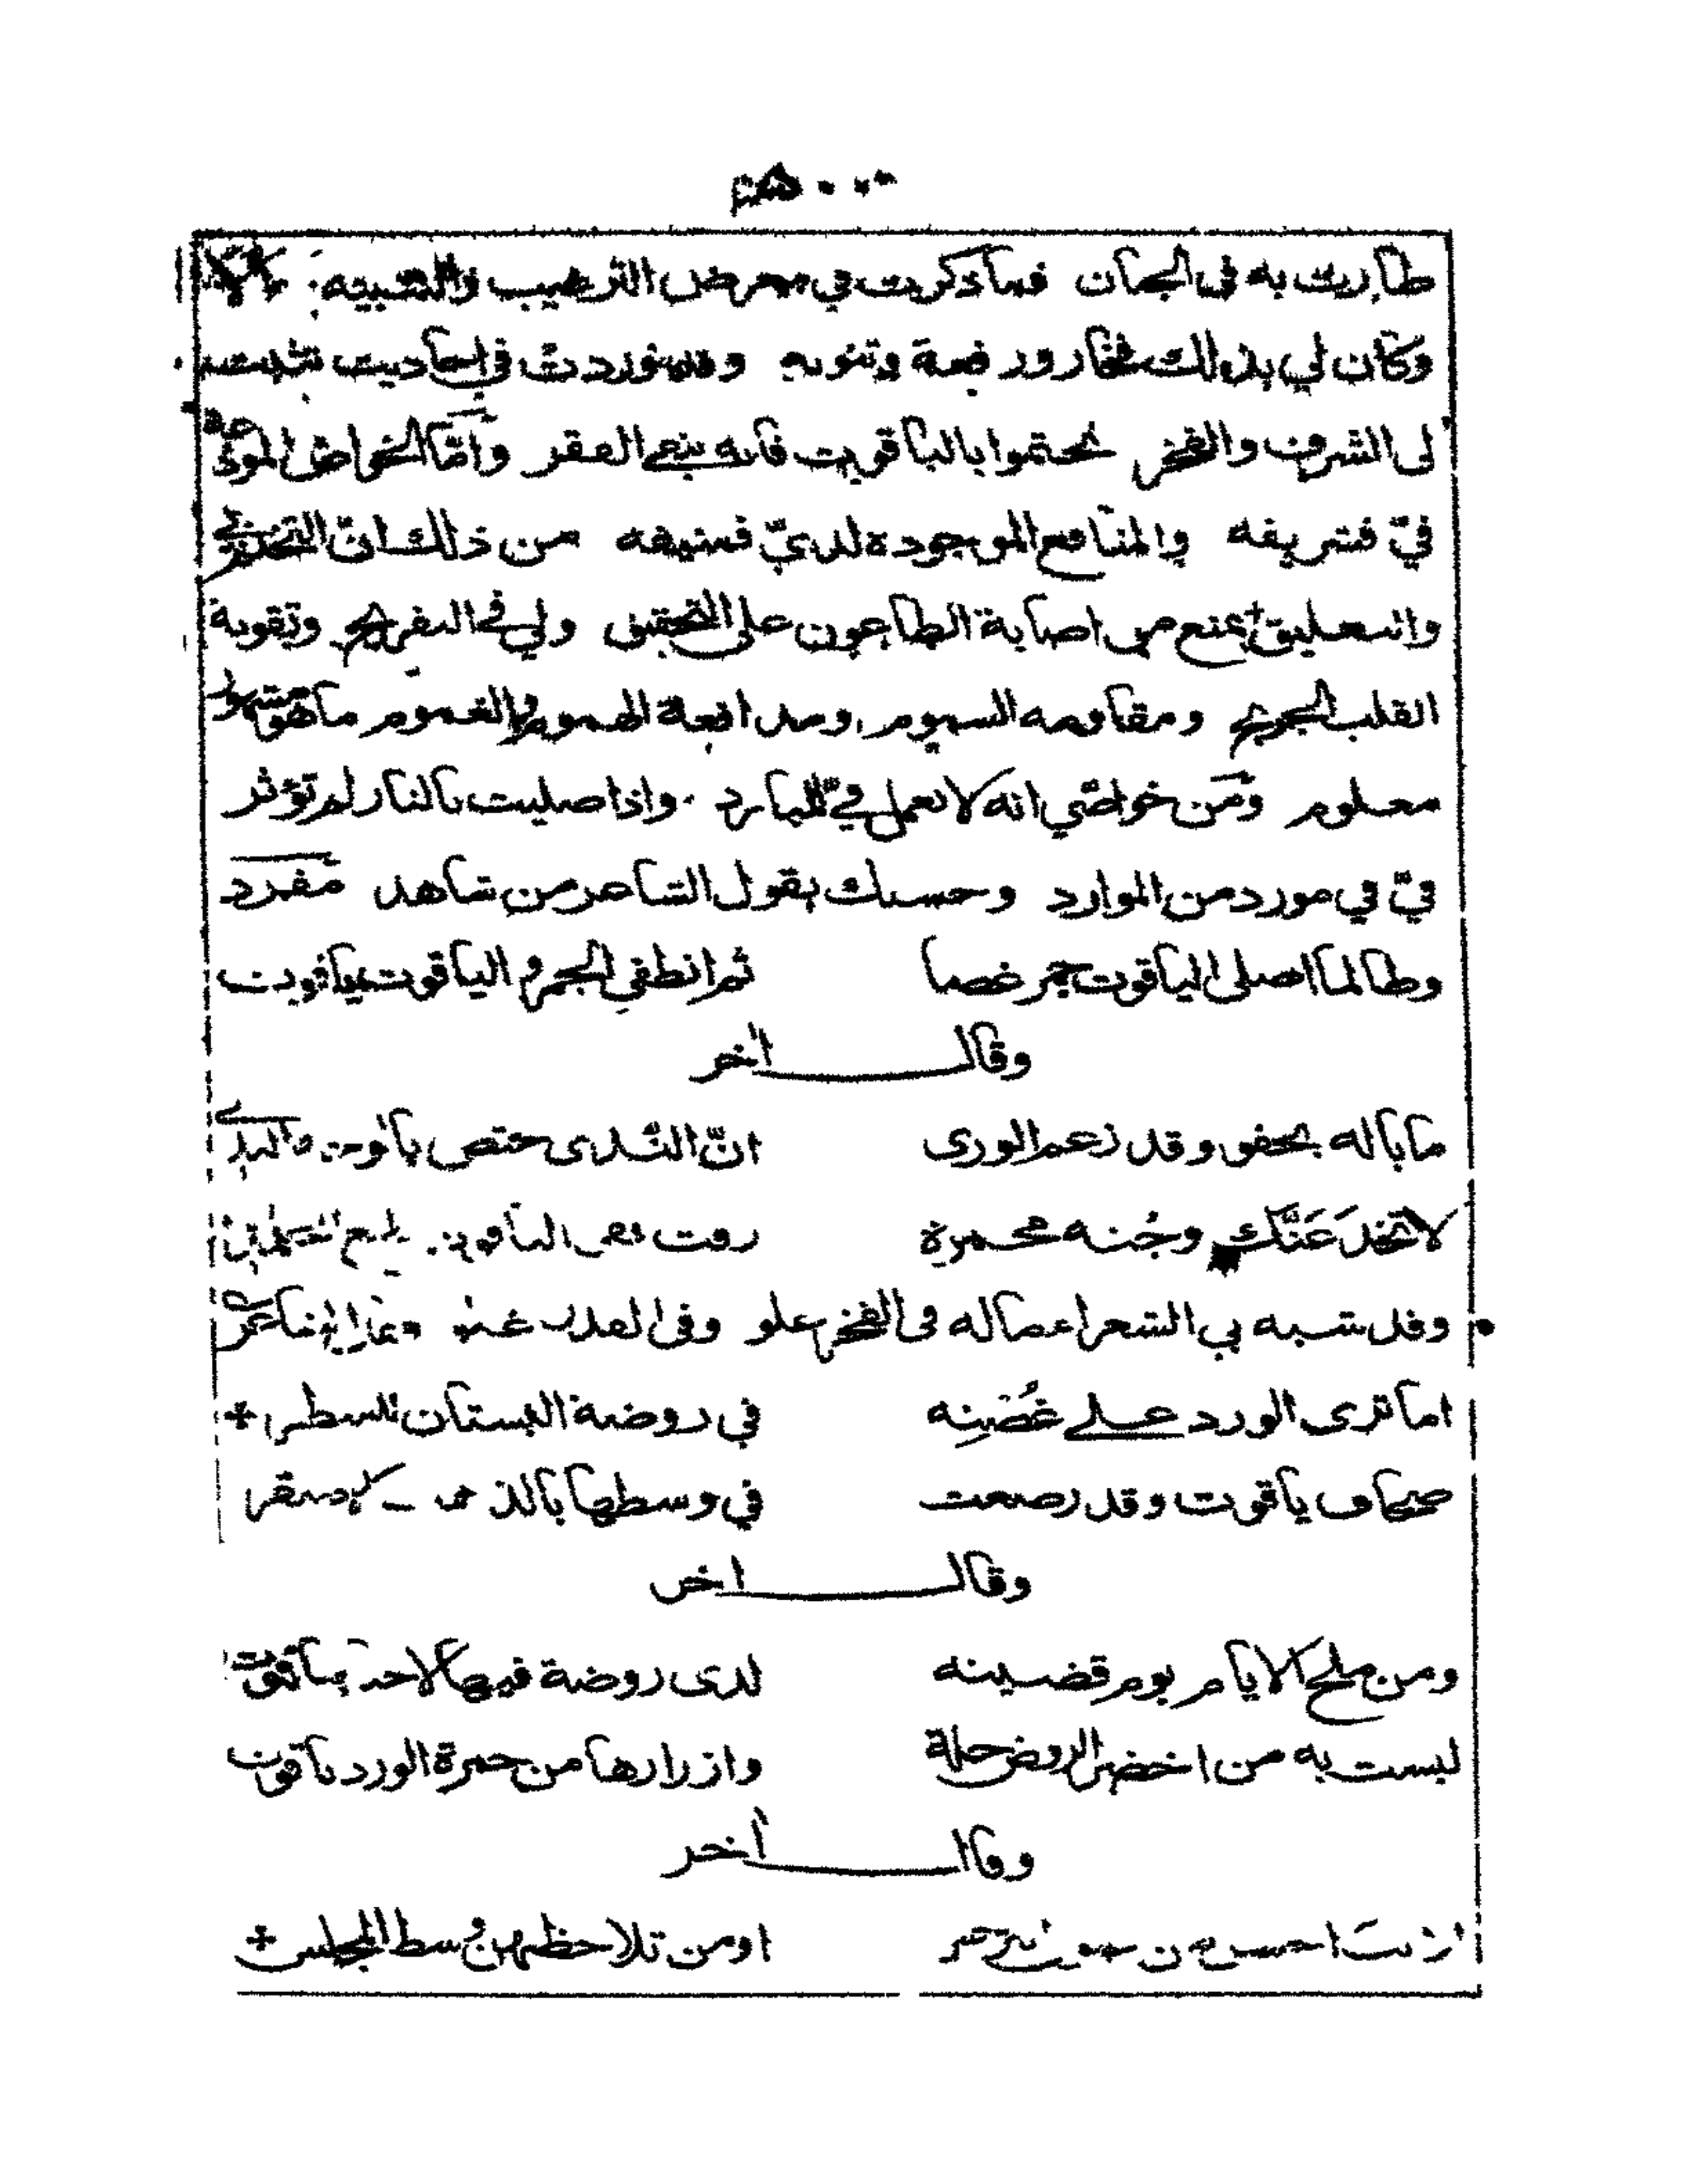 طاربت به في الجمان فما ذكرت في معرض الترغيب والتشبيه
وكان لي بذلك فخار ورفعة وتنويه وقد وردت في احاديث تثبت
لي الشرف والفخر تختموا بالياقوت فانه ينفي الفقر وامّا الخواص المودعة
فيّ فشريفه والمنافع الموجودة لديّ فمنيفه من ذلك انّ التختم بي
والتعليق يمنع من اصابة الطاعون على التحقيق ولي في التفريح وتقوية
القلب الجريح ومقاومه السموم ومدافعة الهموم والغموم ما هو مشهور
معلوم ومن خواصّي انه لا تعمل فيّ المبارد واذا صليت بالنار لم تؤثر
فيّ في مورد من الموارد وحسبك بقول الشاعر من شاهد مفرد
وطالما اصلى الياقوت جمر غضا ثم انطفي الجمر والياقوت ياقوت
وقال اخر
ما باله يجفو وقد زعم الوري انّ الندى مختص بالوجه الندي
لا تخدعنّك وجنه محمرة رقت ففي الياقوت طبع الجلمد
وقد شبه بي الشعرا ما له في الفخر علو وفي القدر
اما ترى الورد على غُصْنِه في روضة البستان
صحاف ياقوت وقد رصعت في وسطها بالذهب الاصفر
وقال اخر
ومن ملح الايام يوم قضيته لدى روضة فيها لاحد
لبست به من اخضر الروض حلة وازرارها من حمرة الورد ياقوت
وقال اخر
ارايت احسن من عيون النرجس او من تلاحظهن وسط المجلس